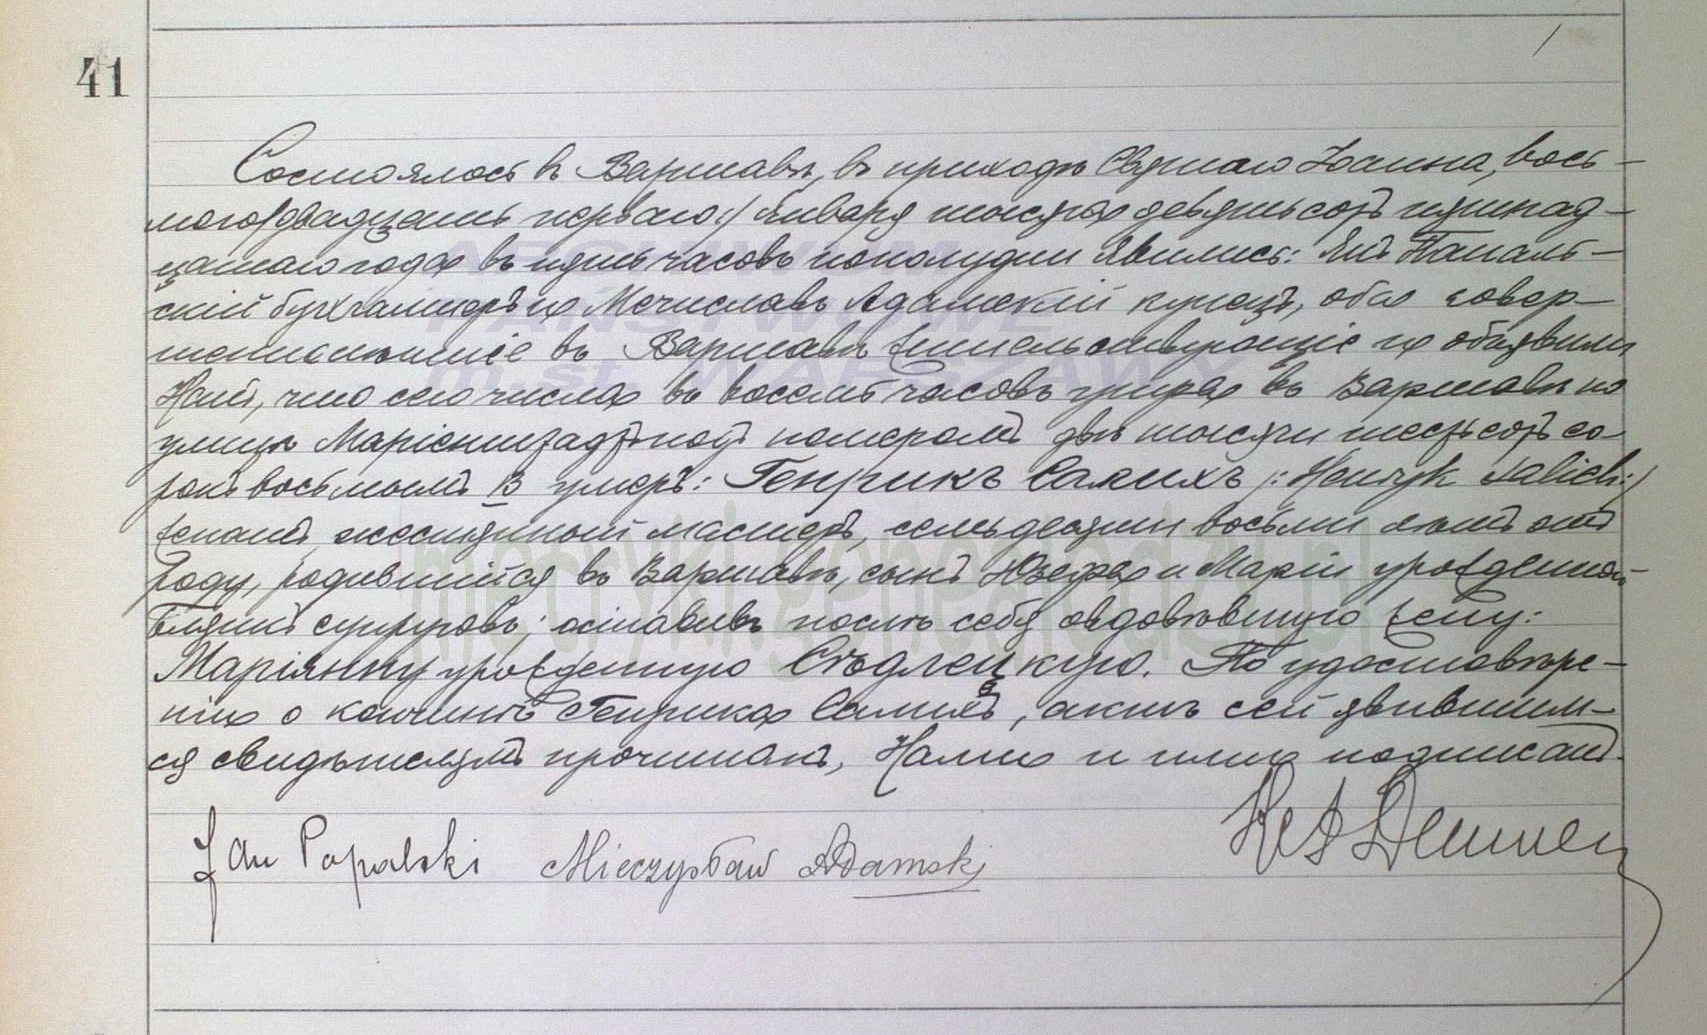 41
Состоялось въ Варшавѣ, въ приходѣ Святаго Іоанна, вось-
маго/двадцать перваго:/ Января тысяча девятьсотъ пятнад-
цатаго года въ пять часовъ пополудни. Явились: Янъ Папаль-
скій бухгалтеръ и Мечиславъ Адамскій купецъ, оба совер-
шеннолѣтніе въ Варшавѣ жительствующіе и объявили
Намъ, что сего числа въ восемь часовъ утра въ Варшавѣ по
улицѣ Маріенштадтъ подъ номеромъ двѣ тысячи шестьсотъ со-
рокъ восьмымъ В умеръ: Генрикъ Салихъ /: Henryk Salich:/
женатъ, жестяной мастеръ, семьдесяти восьми лѣтъ отъ
роду, родившійся въ Варшавѣ, сынъ Юзефа и Маріи урожденной
супруговъ; оставивъ послѣ себя овдовѣвшую жену:
Маріянну урожденную Сѣдлецкую. По удостовѣре-
ніи о кончинѣ Генрика Салиха, актъ сей явившим-
ся свидѣтелямъ прочитанъ, Нами и ими подписанъ.
Jan Papalski Mieczysław Adamski